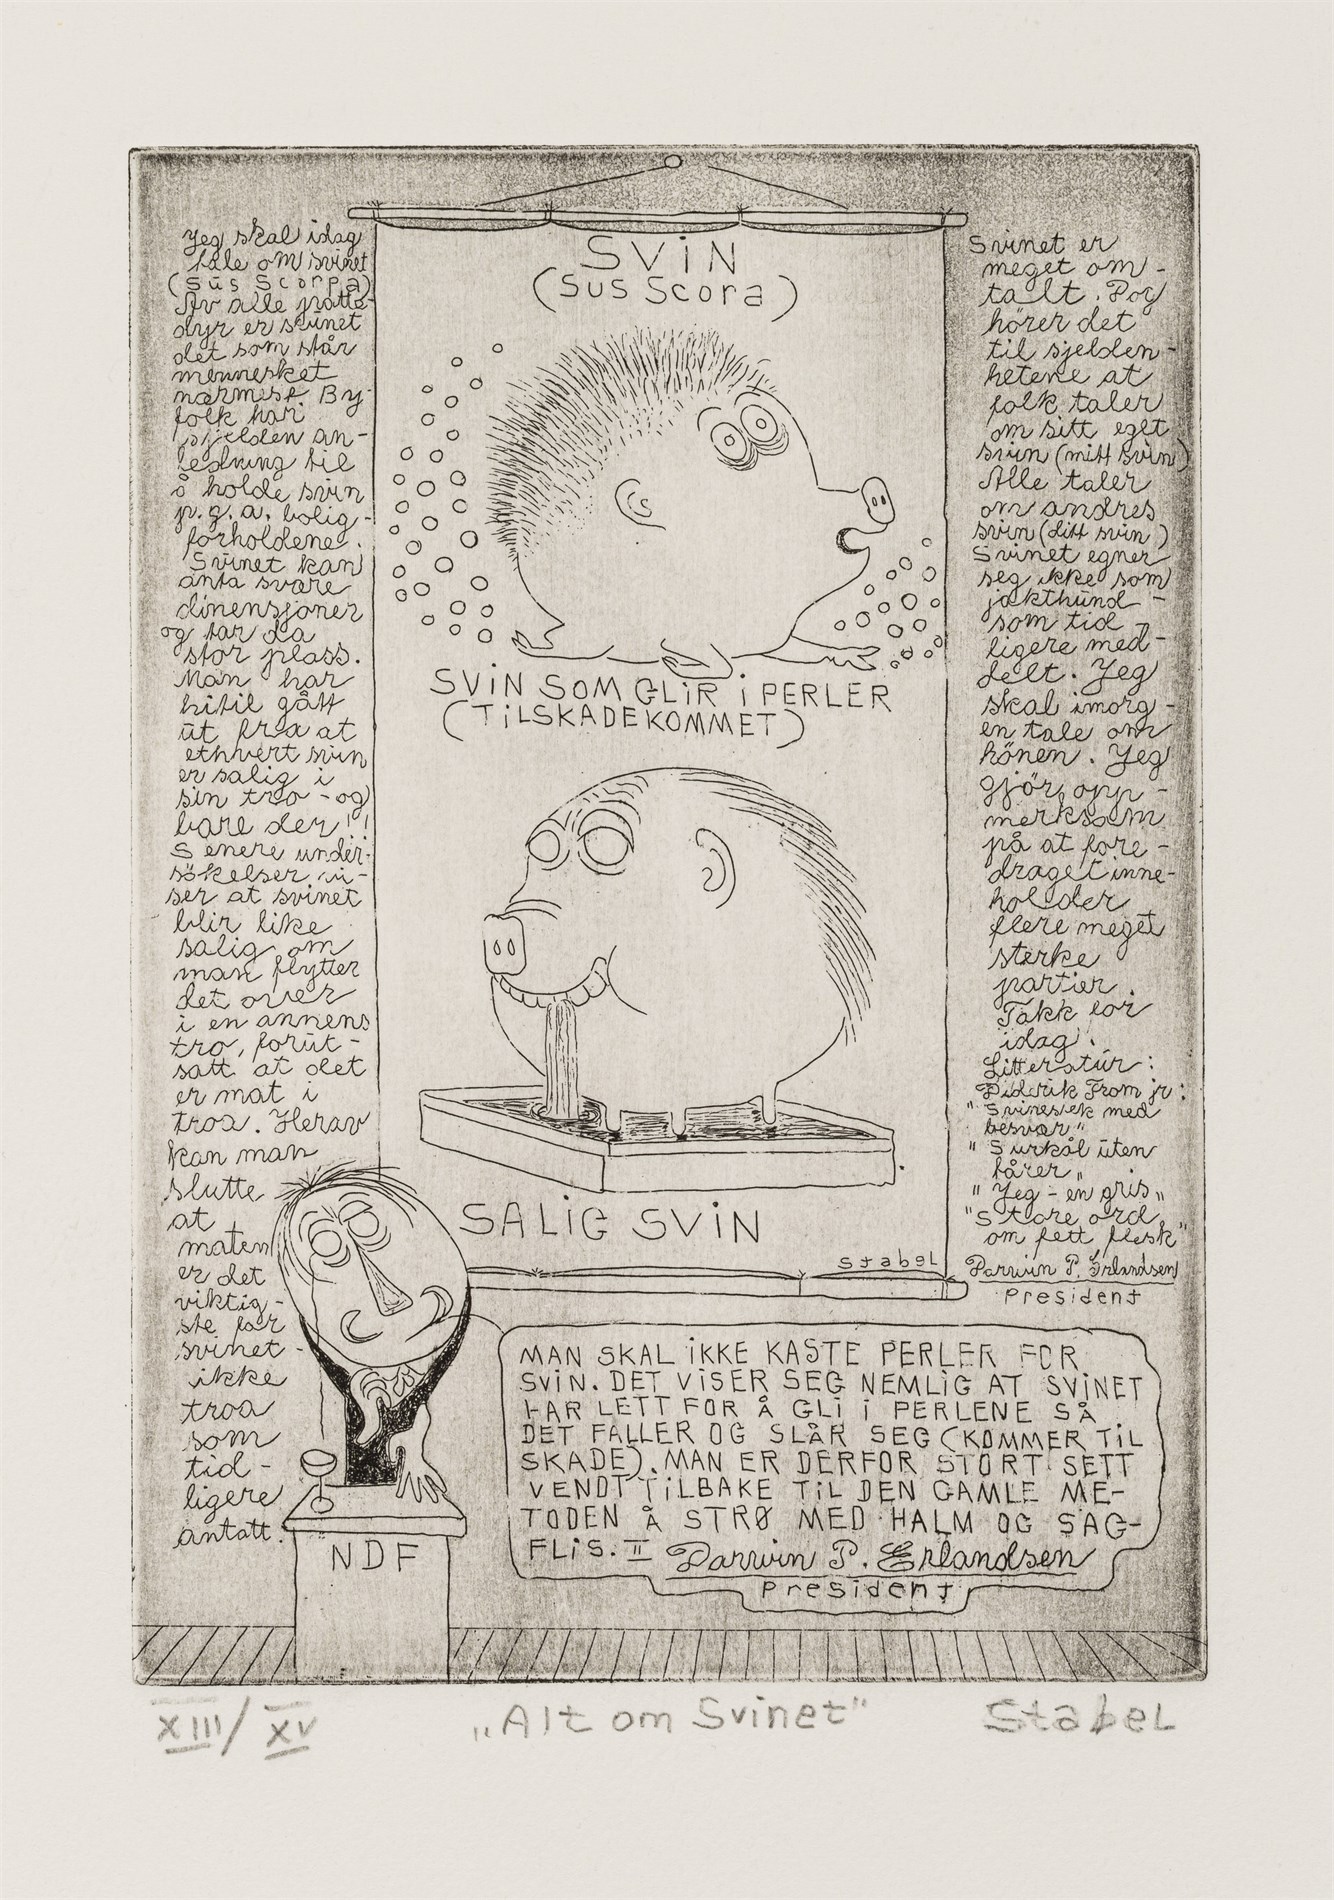 Jeg skal idag
tale om svinet
(Sus Scorpa)
Av alle patte-
dyr er svinet
det som står
mennesket
nærmest. By-
folk har
sjelden an-
ledning til
å holde svin
p.g.a. bolig-
forholdene.
Svinet kan
anta svære
dimensjoner
og tar da
stor plass.
Man har
hitil gått
ut fra at
ethvert svin
er salig i
sin tro - og
bare der!!
Senere under-
sökelser vi-
ser at svinet
blir like
salig om
man flytter
det over
i en annens
tro, forut-
satt at det
er mat i
troa. Herav
kan man
slutte
at
maten
er det
viktig-
ste for
svinet -
ikke
troa
som
tid-
ligere
antatt.
SViN
(Sus Scora)
SViN SOM GLiR i PERLER
(TiLSKADEKOMMET)
SALiG SViN
StabeL
Svinet er
meget om-
talt. Dog
hörer det
til sjelden-
hetene at
folk taler
om sitt eget
svin (mitt svin)
Alle taler
om andres
svin (ditt svin)
Svinet egner
seg ikke som
jakthund -
som tid-
ligere med-
delt. Jeg
skal imorg-
en tale om
hönen. Jeg
gjör opp-
merksom
på at fore-
draget inne-
holder
flere meget
sterke
partier.
Takk for
idag!
Litteratur:
Didrik From jr:
"Svinesek med
besvær"
"Surkål uten
tårer"
"Jeg - en gris"
"Store ord
om fett flesk"
Darwin P. Erlandsen
President
MAN SKAL iKKE KASTE PERLER FOR
SViN. DET ViSER SEG NEMLiG AT SViNET
HAR LETT FOR Å GLi i PERLENE SÅ
DET FALLER OG SLÅR SEG (KOMMER TiL
SKADE). MAN ER DERFOR STORT SETT
VENDT TiLBAKE TiL DEN GAMLE ME-
TODEN Å STRØ MED HALM OG SAG-
FLiS. II Darwin P. Erlandsen
President
NDF
XIII/XV
„Alt om Svinet"
StabeL